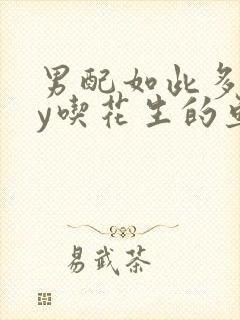 男配如此多
y喫花生的
易武茶